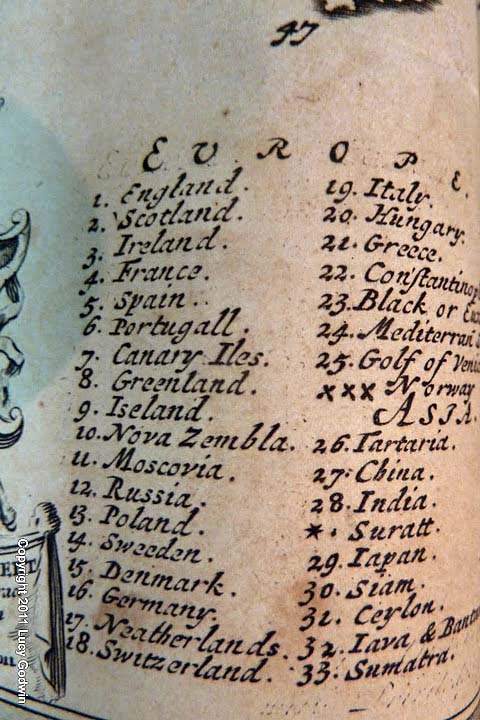 47
EUROPE.
1. England.
2. Scotland.
3. Ireland.
4. France.
5. Spain.
6. Portugall.
7. Canary Iles.
8. Greenland.
9. Iseland.
10. Nova Zembla.
11. Moscovia.
12. Russia.
13. Poland.
14. Sweeden.
15. Denmark.
16. Germany.
17. Neatherlands.
18. Switzerland.
19. Italy.
20. Hungary.
21. Greece.
22. Constantinop
23. Black or Eux
24. Mediterran
25. Golf of Veni
xxx Norway
ASIA.
26. Tartaria.
27. China.
28. India.
*. Suratt.
29. Iapan.
30. Siam.
31. Ceylon.
32. Iava & Bant
33. Sumatra.
Copyright 2011 Lucy Godwin